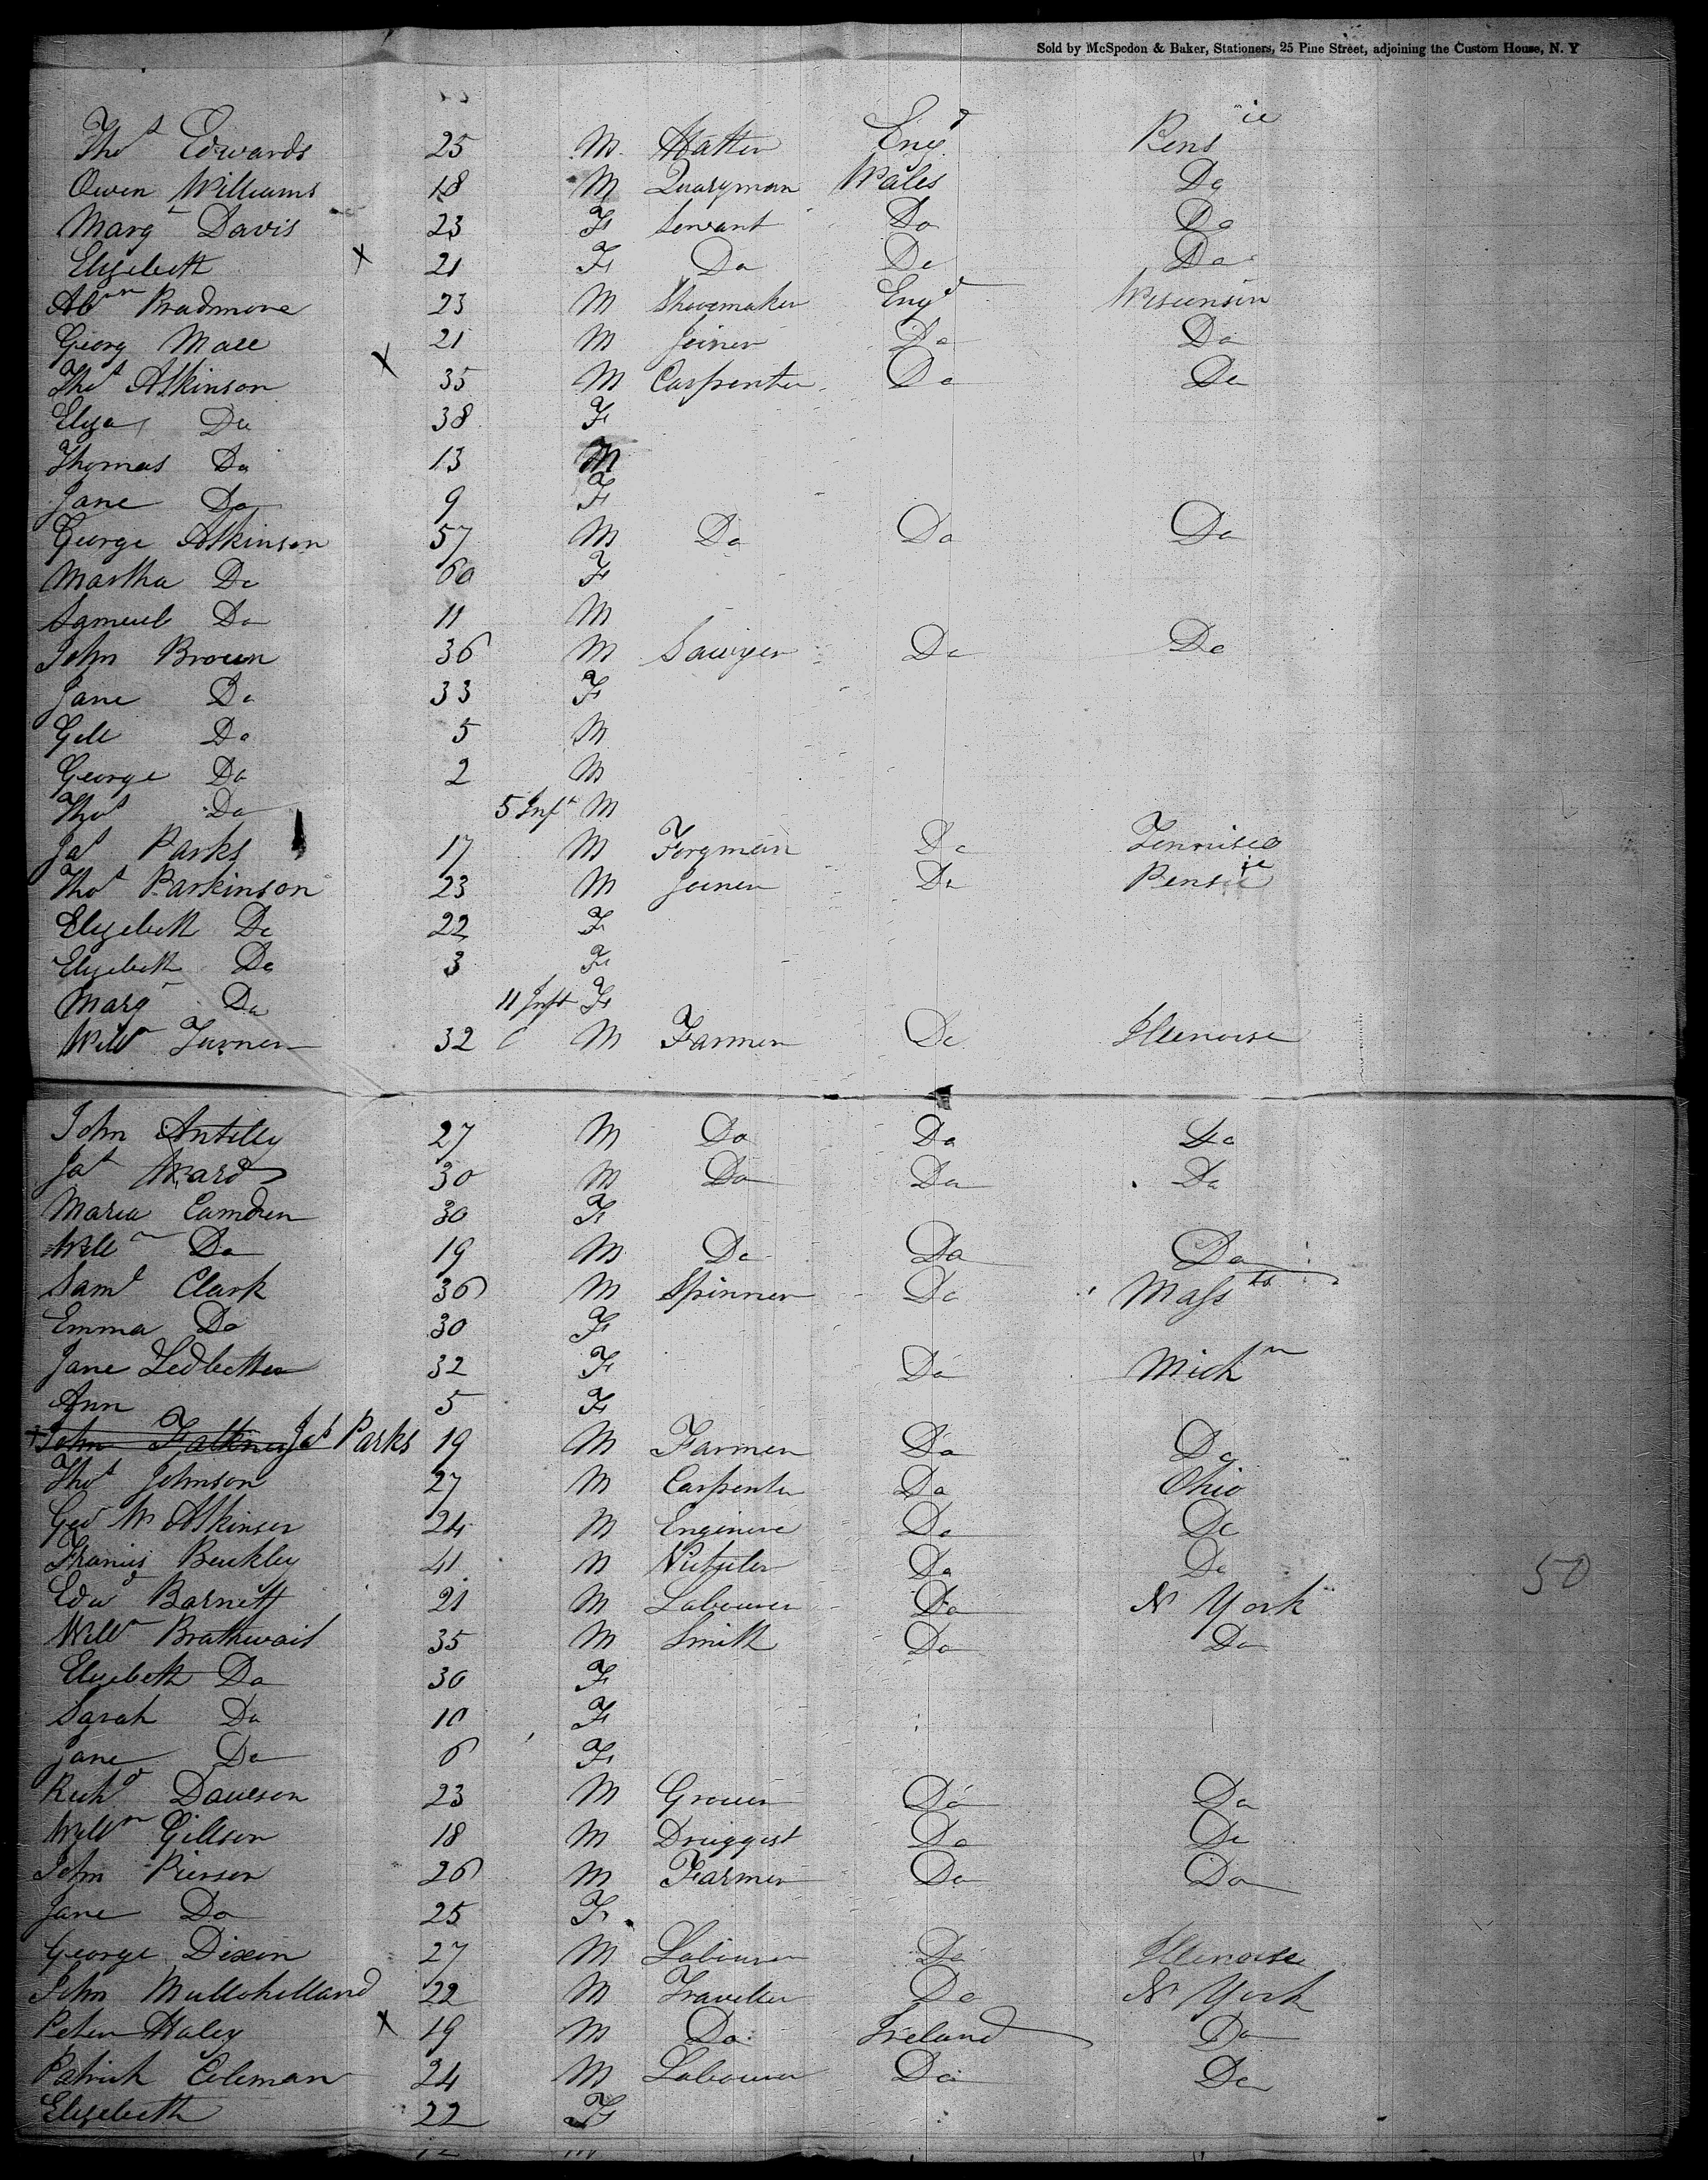 Sold by McSpedon & Baker, Stationers, 25 Pine Street, adjoining the Custom House, N. Y
Thos Edwards 25 M Hatter Engd Pensie
Owen Williams 18 M Quarryman Wales Do
Margt Davis 23 F Servant Do Do
Elizebeth x 21 F Do Do Do
Abrm Bradmore 23 M Shoemaker Engd Wisconsin
Georg Mace 21 M Joiner Do Do
Thos Atkinson x 35 M Carpenter Do Do
Eliza Do 38 F
Thomas Do 13 M
Jane Do 9 F
George Atkinson 57 M Do Do Do
Martha Do 60 F
Samuel Do 11 M
John Brown 36 M Sawyer Do Do
Jane Do 33 F
Do 5 M
George Do 2 M
Thos Do 5 Inft M
Jas Parks 17 M Forgman Do Tennisee
Thos Parkinson 23 M Joiner Do Pensie
Elizebeth Do 22 F
Elizebeth Do 3 F
Margt Do 11 Inft F
Willm Turner 32 M Farmer Do Illenoise
John Antilly 27 M Do Do Do
Jas Ward 30 M Do Do Do
Maria Camdren 30 F
Willm Do 19 M Do Do Do
Saml Clark 36 M Spinner Do Massts
Emma Do 30 F
Jane Ledbetter 32 F Do Michn
Ann 5 F
+ John Jas Parks 19 M Farmer Do Do
Thos Johnson 27 M Carpenter Do Ohio
Geo W Atkinson 24 M Do Do
Francis Beukley 41 M Do Do
Edwd Barnett 21 M Labourer Do N York
Willm Brathwait 35 M Smith Do Do
Elizebeth Do 30 F
Sarah Do 10 F
Jane Do 6 F
Richd Dawson 23 M Grocer Do Do
Willm Gillson 18 M Druggist Do Do
John Pierson 26 M Farmer Do Do
Jane Do 25 F
George Dixon 27 M Labourer Do Illenoise
John Mullohilland 22 M Traveller Do N York
Peter Haley x 19 M Do Ireland Do
Patrick Coleman 24 M Labourer Do Do
Elizebeth 22 F
50